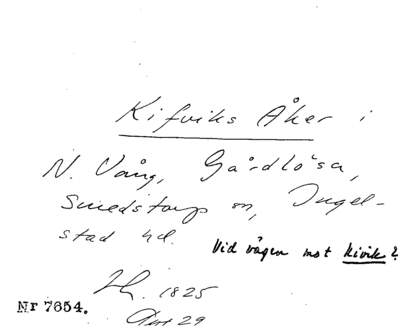 Kifviks Åker i
N. Vång, Gårdlösa,
Smedstorp sn, Ingel-
stad hd.
Vid vägen mot Kivik?
1825
29
Nr 7654.